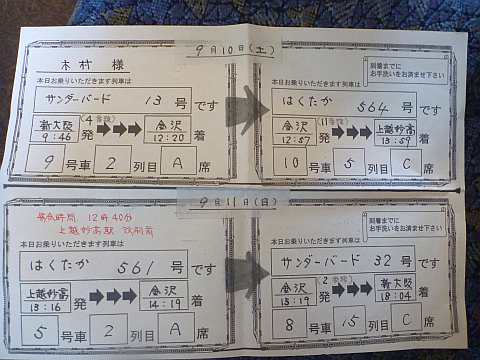 9月10日(土)
木村 様
本日お乗りいただきます列車は
サンダーバード 13 号です
新大阪 9:46 発 (4番線) 金沢 12:20 着
9 号車 2 列目 A 席
到着までに
お手洗いをお済ませ下さい
はくたか 564 号です
金沢 12:57 発 (11番線) 上越妙高 13:59 着
10 号車 5 列目 C 席
9月11日(日)
集合時間 12時40分
上越妙高駅 改札前
本日お乗りいただきます列車は
はくたか 561 号です
上越妙高 13:16 発 金沢 14:19 着
5 号車 2 列目 A 席
到着までに
お手洗いをお済ませ下さい
サンダーバード 32 号です
金沢 15:19 発 (2番線) 新大阪 18:04 着
8 号車 15 列目 C 席